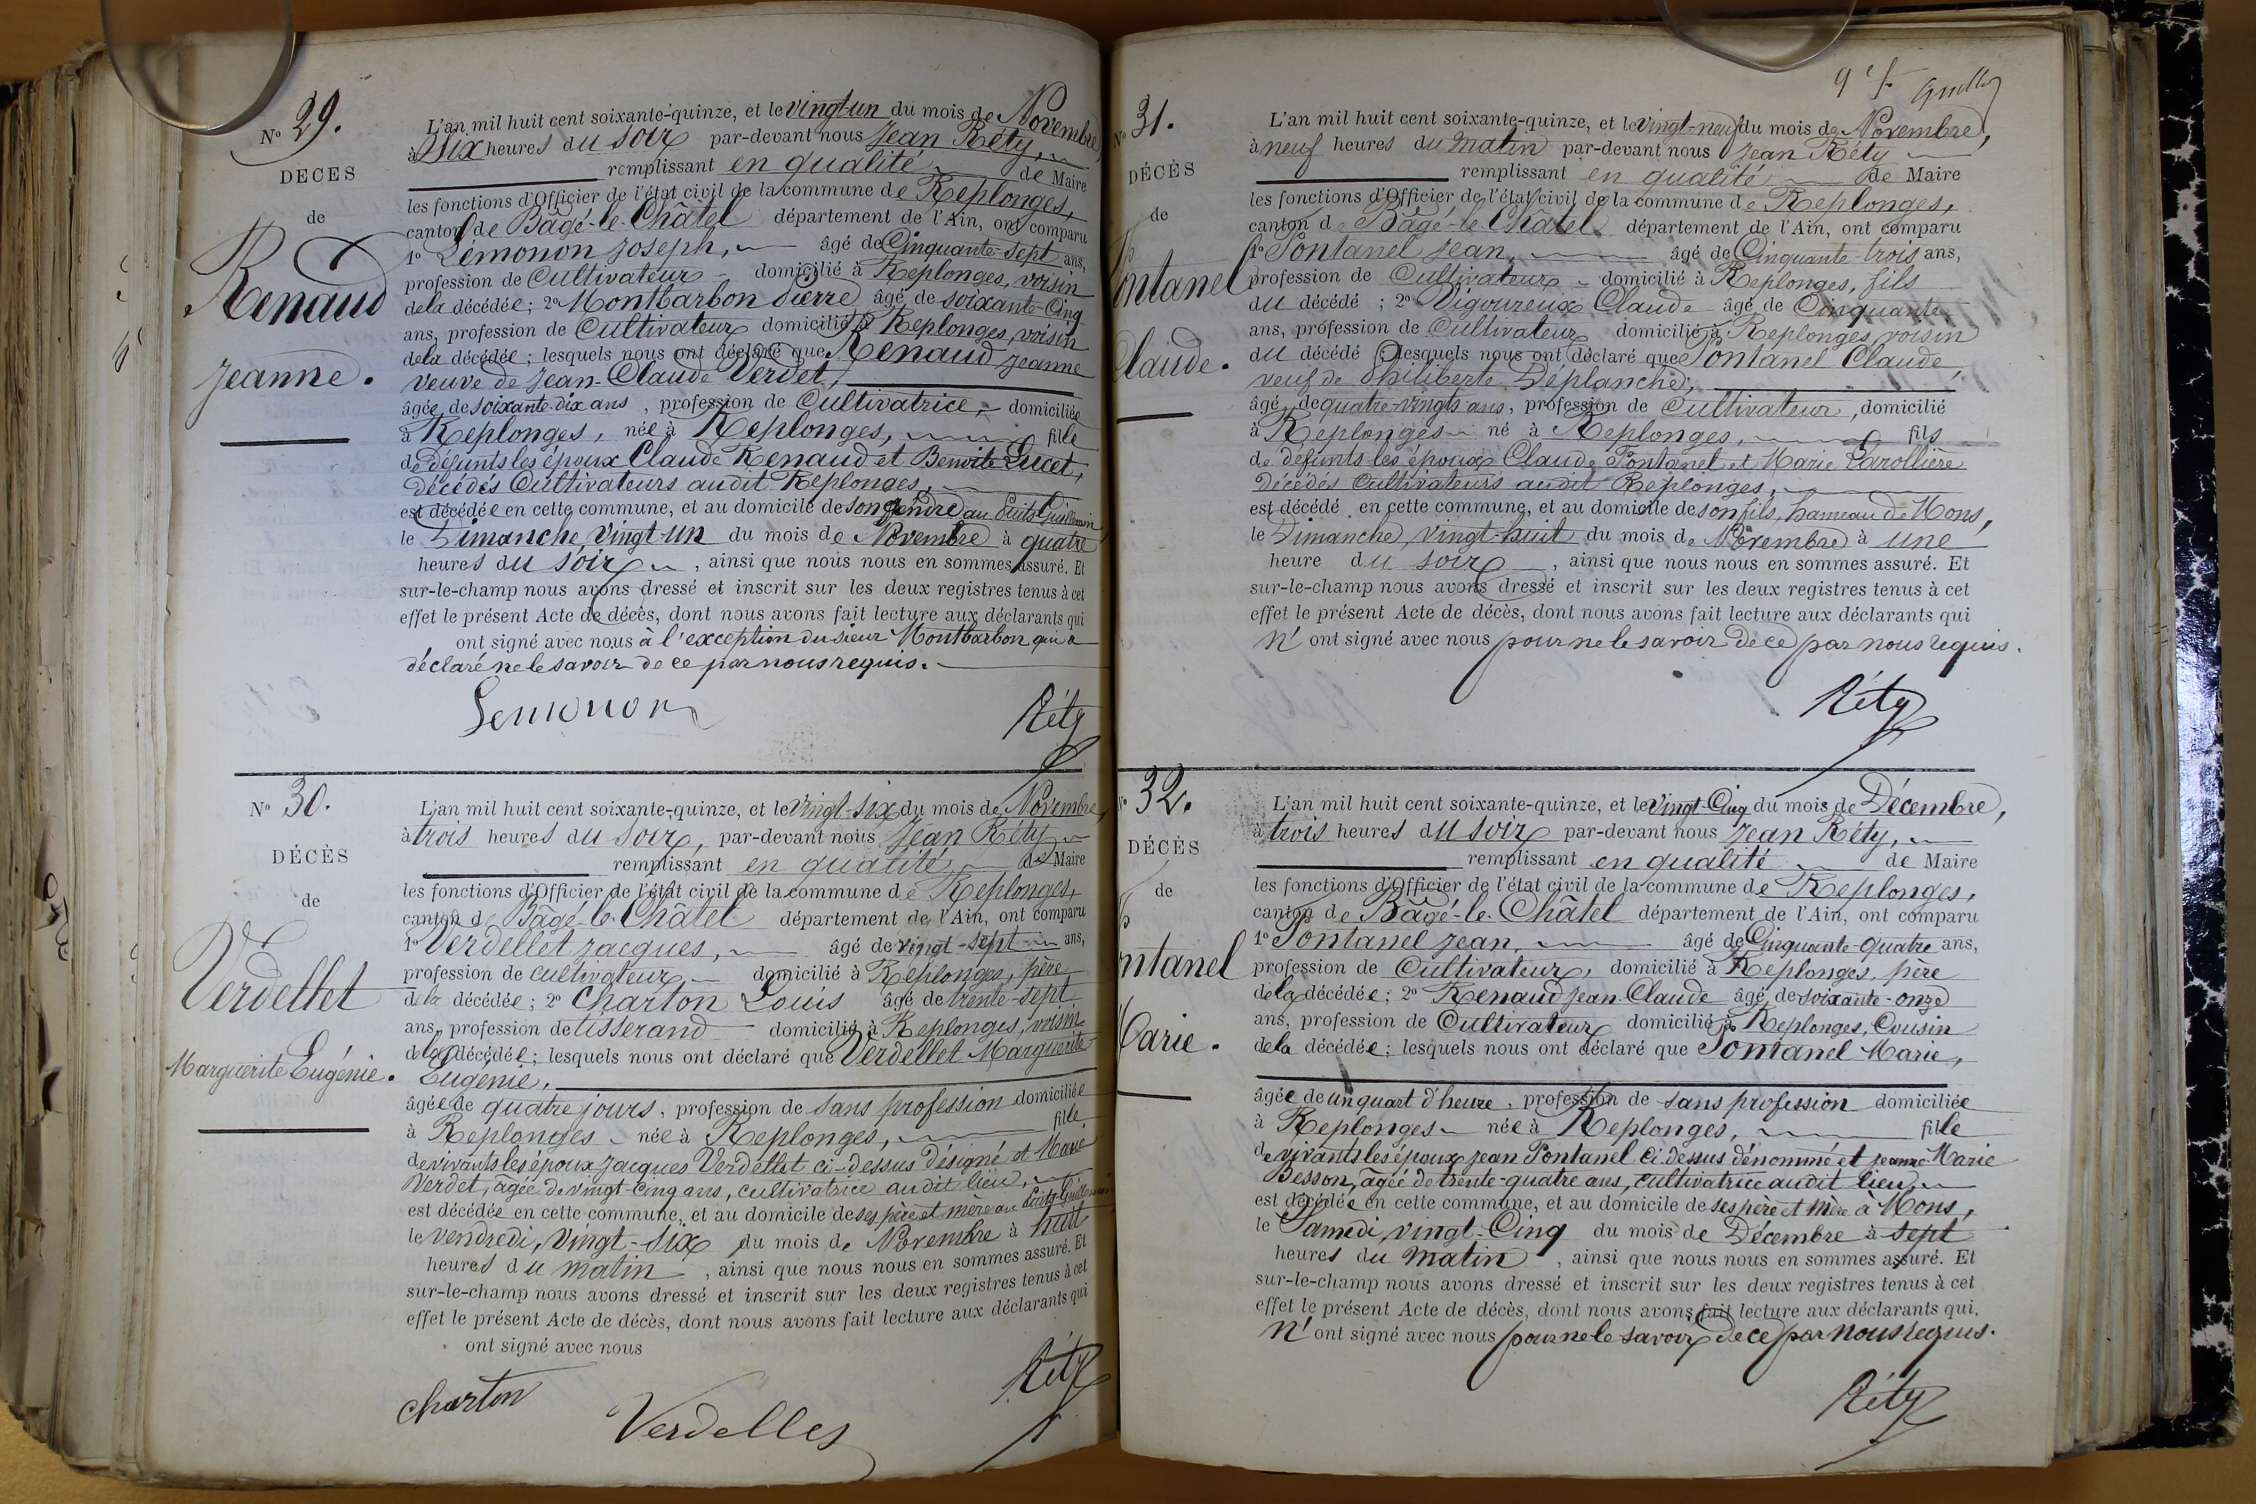 Nº 29.
DECES
de
Renaud
Jeanne.
L'an mil huit cent soixante-quinze, et le vingt-un du mois de Novembre,
à Six heures du soir par-devant nous Jean Réty,
remplissant en qualité de Maire
les fonctions d'Officier de l'état civil de la commune de Replonges,
canton de Bâgé-le-Châtel département de l'Ain, ont comparu
1º Lémonon Joseph, âgé de Cinquante-sept ans,
profession de Cultivateur domicilié à Replonges, voisin
de la décédée; 2º Montbarbon Pierre âgé de soixante-Cinq
ans, profession de Cultivateur domicilié à Replonges, voisin
de la décédée; lesquels nous ont déclaré que Renaud Jeanne
veuve de Jean-Claude Verdet,
âgée de soixante-dix ans, profession de Cultivatrice, domiciliée
à Replonges, née à Replonges, fille
de défunts les époux Claude Renaud et Benoite Lucet,
décédés Cultivateurs audit Replonges,
est décédée en cette commune, et au domicile de son gendre au Puits Guillemin
le Dimanche vingt-un du mois de Novembre à quatre
heures du soir, ainsi que nous nous en sommes assuré. Et
sur-le-champ nous avons dressé et inscrit sur les deux registres tenus à cet
effet le présent Acte de décès, dont nous avons fait lecture aux déclarants qui
ont signé avec nous à l'exception du sieur Montbarbon qui a
déclaré ne le savoir de ce par nous requis.
Lemonon
Réty
Nº 30.
DÉCÈS
de
Verdellet
Marguerite Eugénie.
L'an mil huit cent soixante-quinze, et le Vingt-six du mois de Novembre,
à trois heures du soir, par-devant nous Jean Réty
remplissant en qualité de Maire
les fonctions d'Officier de l'état civil de la commune de Replonges,
canton de Bâgé-le-Châtel département de l'Ain, ont comparu
1º Verdellet Jacques, âgé de vingt-sept ans,
profession de cultivateur domicilié à Replonges, père
de la décédée; 2º Charton Louis âgé de trente-sept
ans, profession de tisserand domicilié à Replonges, voisin
de la décédée; lesquels nous ont déclaré que Verdellet Marguerite
Eugénie,
âgée de quatre jours, profession de sans profession domiciliée
à Replonges née à Replonges, fille
de vivants les époux Jacques Verdellet ci-dessus désigné et Marie
Verdet, âgée de vingt-cinq ans, cultivatrice audit lieu,
est décédée en cette commune, et au domicile de ses père et mère au Puits-Guillemin
le vendredi, vingt-six du mois de Novembre à huit
heures du matin, ainsi que nous nous en sommes assuré. Et
sur-le-champ nous avons dressé et inscrit sur les deux registres tenus à cet
effet le présent Acte de décès, dont nous avons fait lecture aux déclarants qui
ont signé avec nous
Charton
Verdelles
Réty
9
Nº 31.
DÉCÈS
de
ontanel
Claude.
L'an mil huit cent soixante-quinze, et le vingt-neuf du mois de Novembre,
à neuf heures du matin par-devant nous Jean Réty
remplissant en qualité de Maire
les fonctions d'Officier de l'état civil de la commune de Replonges,
canton de Bâgé-le-Châtel département de l'Ain, ont comparu
1º Pontanel Jean, âgé de Cinquante-trois ans,
profession de Cultivateur domicilié à Replonges, fils
du décédé; 2º Vigoureux Claude âgé de Cinquante
ans, profession de Cultivateur domicilié à Replonges, voisin
du décédé; lesquels nous ont déclaré que Pontanel Claude,
veuf de Philiberte Déplanche,
âgé de quatre-vingts ans, profession de Cultivateur, domicilié
à Replonges né à Replonges, fils
de défunts les époux Claude Pontanel et Marie Larollière
décédés Cultivateurs audit Replonges,
est décédé en cette commune, et au domicile de son fils, hameau de Mons,
le Dimanche, vingt-huit du mois de Novembre à une
heure du soir, ainsi que nous nous en sommes assuré. Et
sur-le-champ nous avons dressé et inscrit sur les deux registres tenus à cet
effet le présent Acte de décès, dont nous avons fait lecture aux déclarants qui
n'ont signé avec nous pour ne le savoir de ce par nous requis.
Réty
Nº 32.
DÉCÈS
de
ontanel
Marie.
L'an mil huit cent soixante-quinze, et le vingt-Cinq du mois de Décembre,
à trois heures du soir par-devant nous Jean Réty,
remplissant en qualité de Maire
les fonctions d'Officier de l'état civil de la commune de Replonges,
canton de Bâgé-le-Châtel département de l'Ain, ont comparu
1º Pontanel Jean, âgé de Cinquante-quatre ans,
profession de Cultivateur, domicilié à Replonges, père
de la décédée; 2º Renaud Jean-Claude âgé de soixante-onze
ans, profession de Cultivateur domicilié à Replonges, Cousin
de la décédée; lesquels nous ont déclaré que Pontanel Marie,
âgée de un quart d'heure, profession de sans profession domiciliée
à Replonges née à Replonges, fille
de vivants les époux Jean Pontanel ci-dessus dénommé et Jeanne Marie
Besson, âgée de trente-quatre ans, cultivatrice audit lieu,
est décédée en cette commune, et au domicile de ses père et mère à Mons,
le Samedi, vingt-Cinq du mois de Décembre à sept
heures du matin, ainsi que nous nous en sommes assuré. Et
sur-le-champ nous avons dressé et inscrit sur les deux registres tenus à cet
effet le présent Acte de décès, dont nous avons fait lecture aux déclarants qui,
n'ont signé avec nous pour ne le savoir de ce par nous requis.
Réty